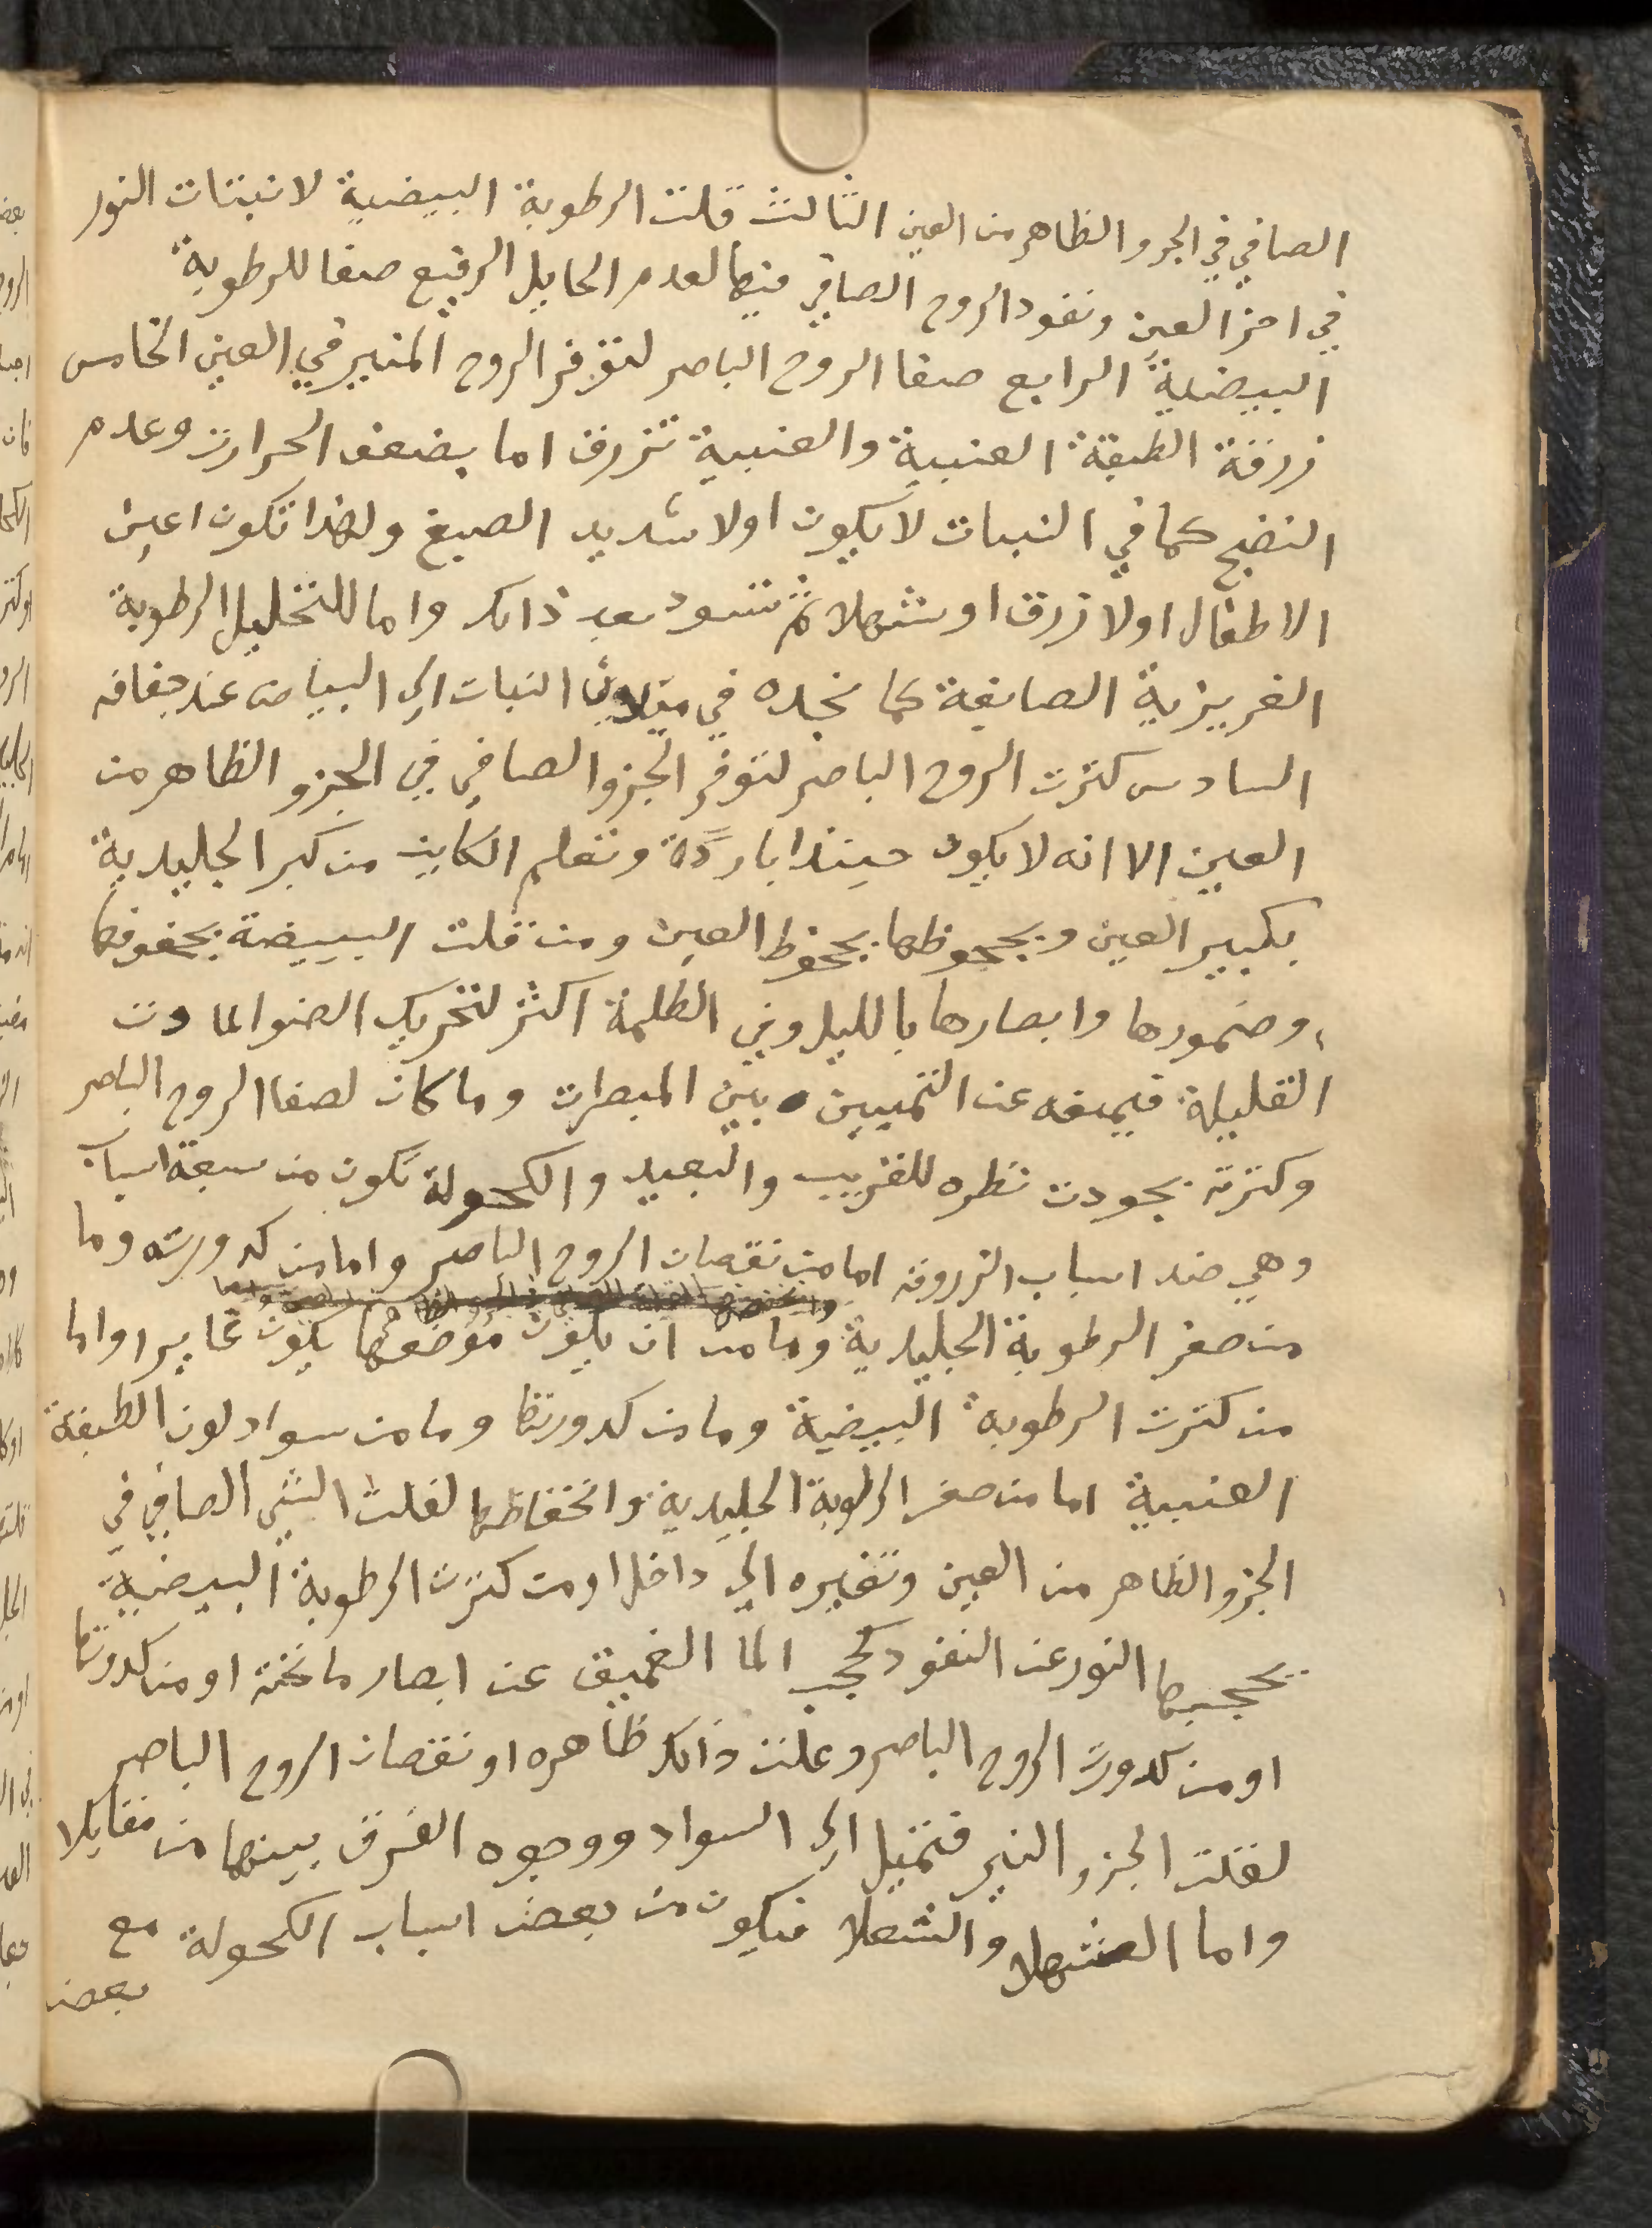 الصافي في الجزو الظاهر من العين الثالث قلت الرطوبة البيضية لانبتات النور
في اجز العين ونفود الروح الصافي فيها لعدم الحايل الرقيع صفا للرطوبة
البيضية الرابع صفا الروح الباصر لتوفر الروح المنير في العين الخامس
زرقة الطبقة العنبية والعنبية تزرق اما بضعف الحرارت وعدم
النضج كما في النبات لا يكون اولا شديد الصبغ ولهذا تكون اعين
الاطفال اولا زرق او شهلا ثم تسود بعد ذالك واما للتخليل الرطوبة
الغريزية الصابغة كما نجده في ميلان النبات الي البياض عند جفافه
السادس كثرت الروح الباصر لتوفر الجزو الصافي في الجزو الظاهر من
العين الا انه لا يكون حينئذ باردة وتعلم الكاين من كبر الجليدية
بكبير العين وبجحوظها بجحوظ العين ومن قلت البيضة بجفوفها
وضمورها وابصارها بالليل وفي الظلمة اكثر لتحريك الضو المادت
القليلة فيمعه عن التميين بين المبصرات وما كان لصفا الروح الباصر
وكثرته بجودت نظره للقريب والبعيد والكحولة تكون من سبعة اسباب
وهي ضد اسباب الزروقه اما من نقصان الروح الباصر واما من كدورته وما
من صغر الرطوبة الجليدية وما من ان يكون موضعها يكون غايرا واما
من كثرت الرطوبة البيضية وما من كدورتها وما من سواد لون الطبقة
العنبية اما من صغر الرطوبة الجليدية وانخفاظها لقلت الشي الصافي في
الجزو الظاهر من العين وتغيره الي داخل او من كثرت الرطوبة البيضية
يحجبها النور عن النفود كحجب الما الغميق عن ابصار ما تحته او من كدورتها
او من كدورت الروح الباصر وعلت ذالك ظاهره او نقصان الروح الباصر
لقلت الجزو النير فتميل الي السواد ووجوه الفرق بينها من مقايلا
واما الشهلا والشعلا فيكون من بعض اسباب الكحولة مع
بعض